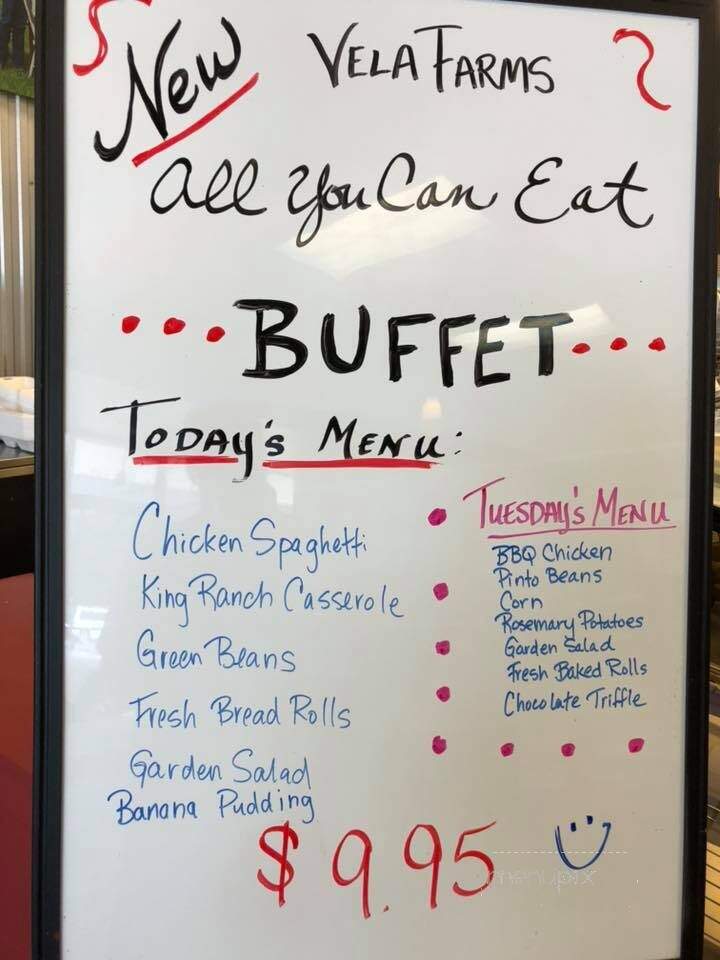 New VELA FARMS
All You Can Eat
BUFFET
TODAY'S MENU:
Chicken Spaghetti
King Ranch Casserole
Green Beans
Fresh Bread Rolls
Garden Salad
Banana Pudding
TUESDAY'S MENU
BBQ Chicken
Pinto Beans
Corn
Rosemary Potatoes
Garden Salad
Fresh Baked Rolls
Chocolate Triffle
$9.95
menupix